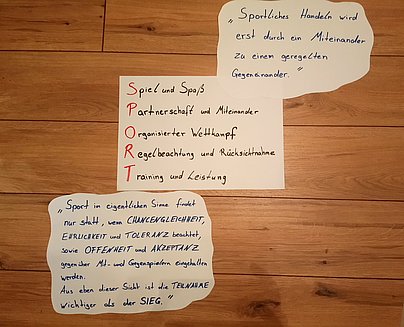 „Sportliches Handeln wird
erst durch ein Miteinander
zu einem geregelten
Gegeneinander."
Spiel und Spaß
Partnerschaft und Miteinander
Organisierter Wettkampf
Regelbeachtung und Rücksichtnahme
Training und Leistung
„Sport im eigentlichen Sinne findet
nur statt, wenn CHANCENGLEICHHEIT,
EHRLICHKEIT und TOLERANZ beachtet,
sowie OFFENHEIT und AKZEPTANZ
gegenüber Mit- und Gegenspielern eingehalten
werden.
Aus eben dieser Sicht ist die TEILNAHME
wichtiger als der SIEG."